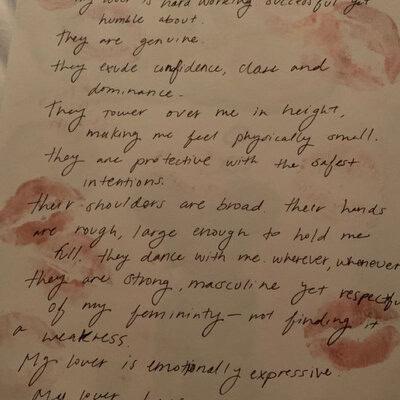 my lover is hard working successful yet
humble about.
They are genuine.
they exude confidence, class and
dominance.
They tower over me in height,
making me feel physically small.
they are protective with the safest
intentions.
their shoulders are broad, their hands
are rough, large enough to hold me
full. they dance with me wherever, whenever
they are strong, masculine yet respectfu
of my femininty — not finding it
a weakness.
My lover is emotionally expressive.
My lover